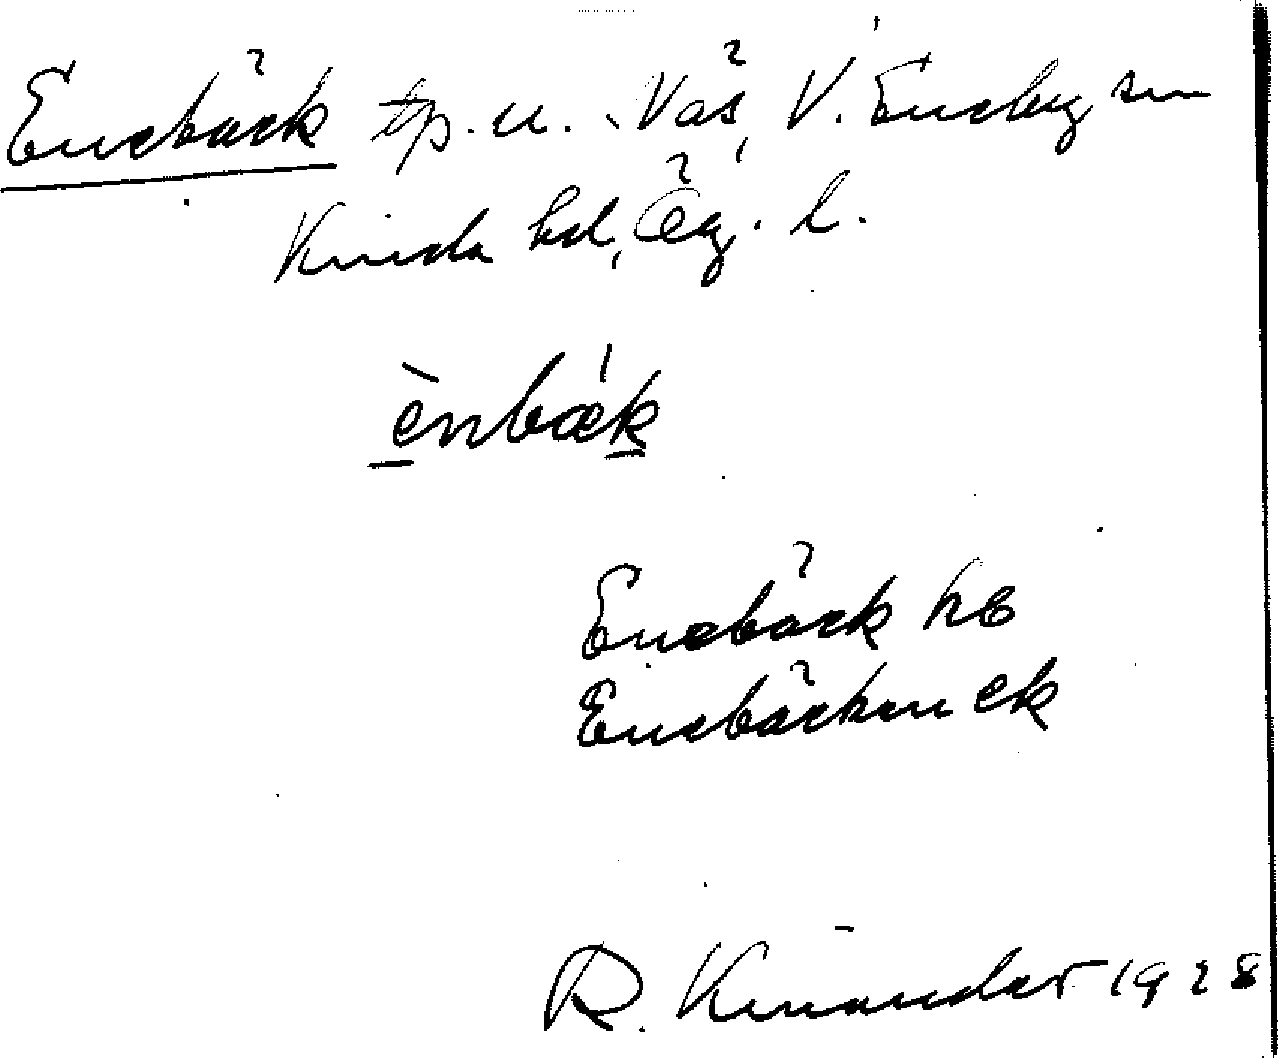 Enebäck tp. u. Väs, V. Eneby sn
Kinda hd, Ög. l.
ènbæ´k
Enebäck
Enebäcken ek
R. Kinander 1928